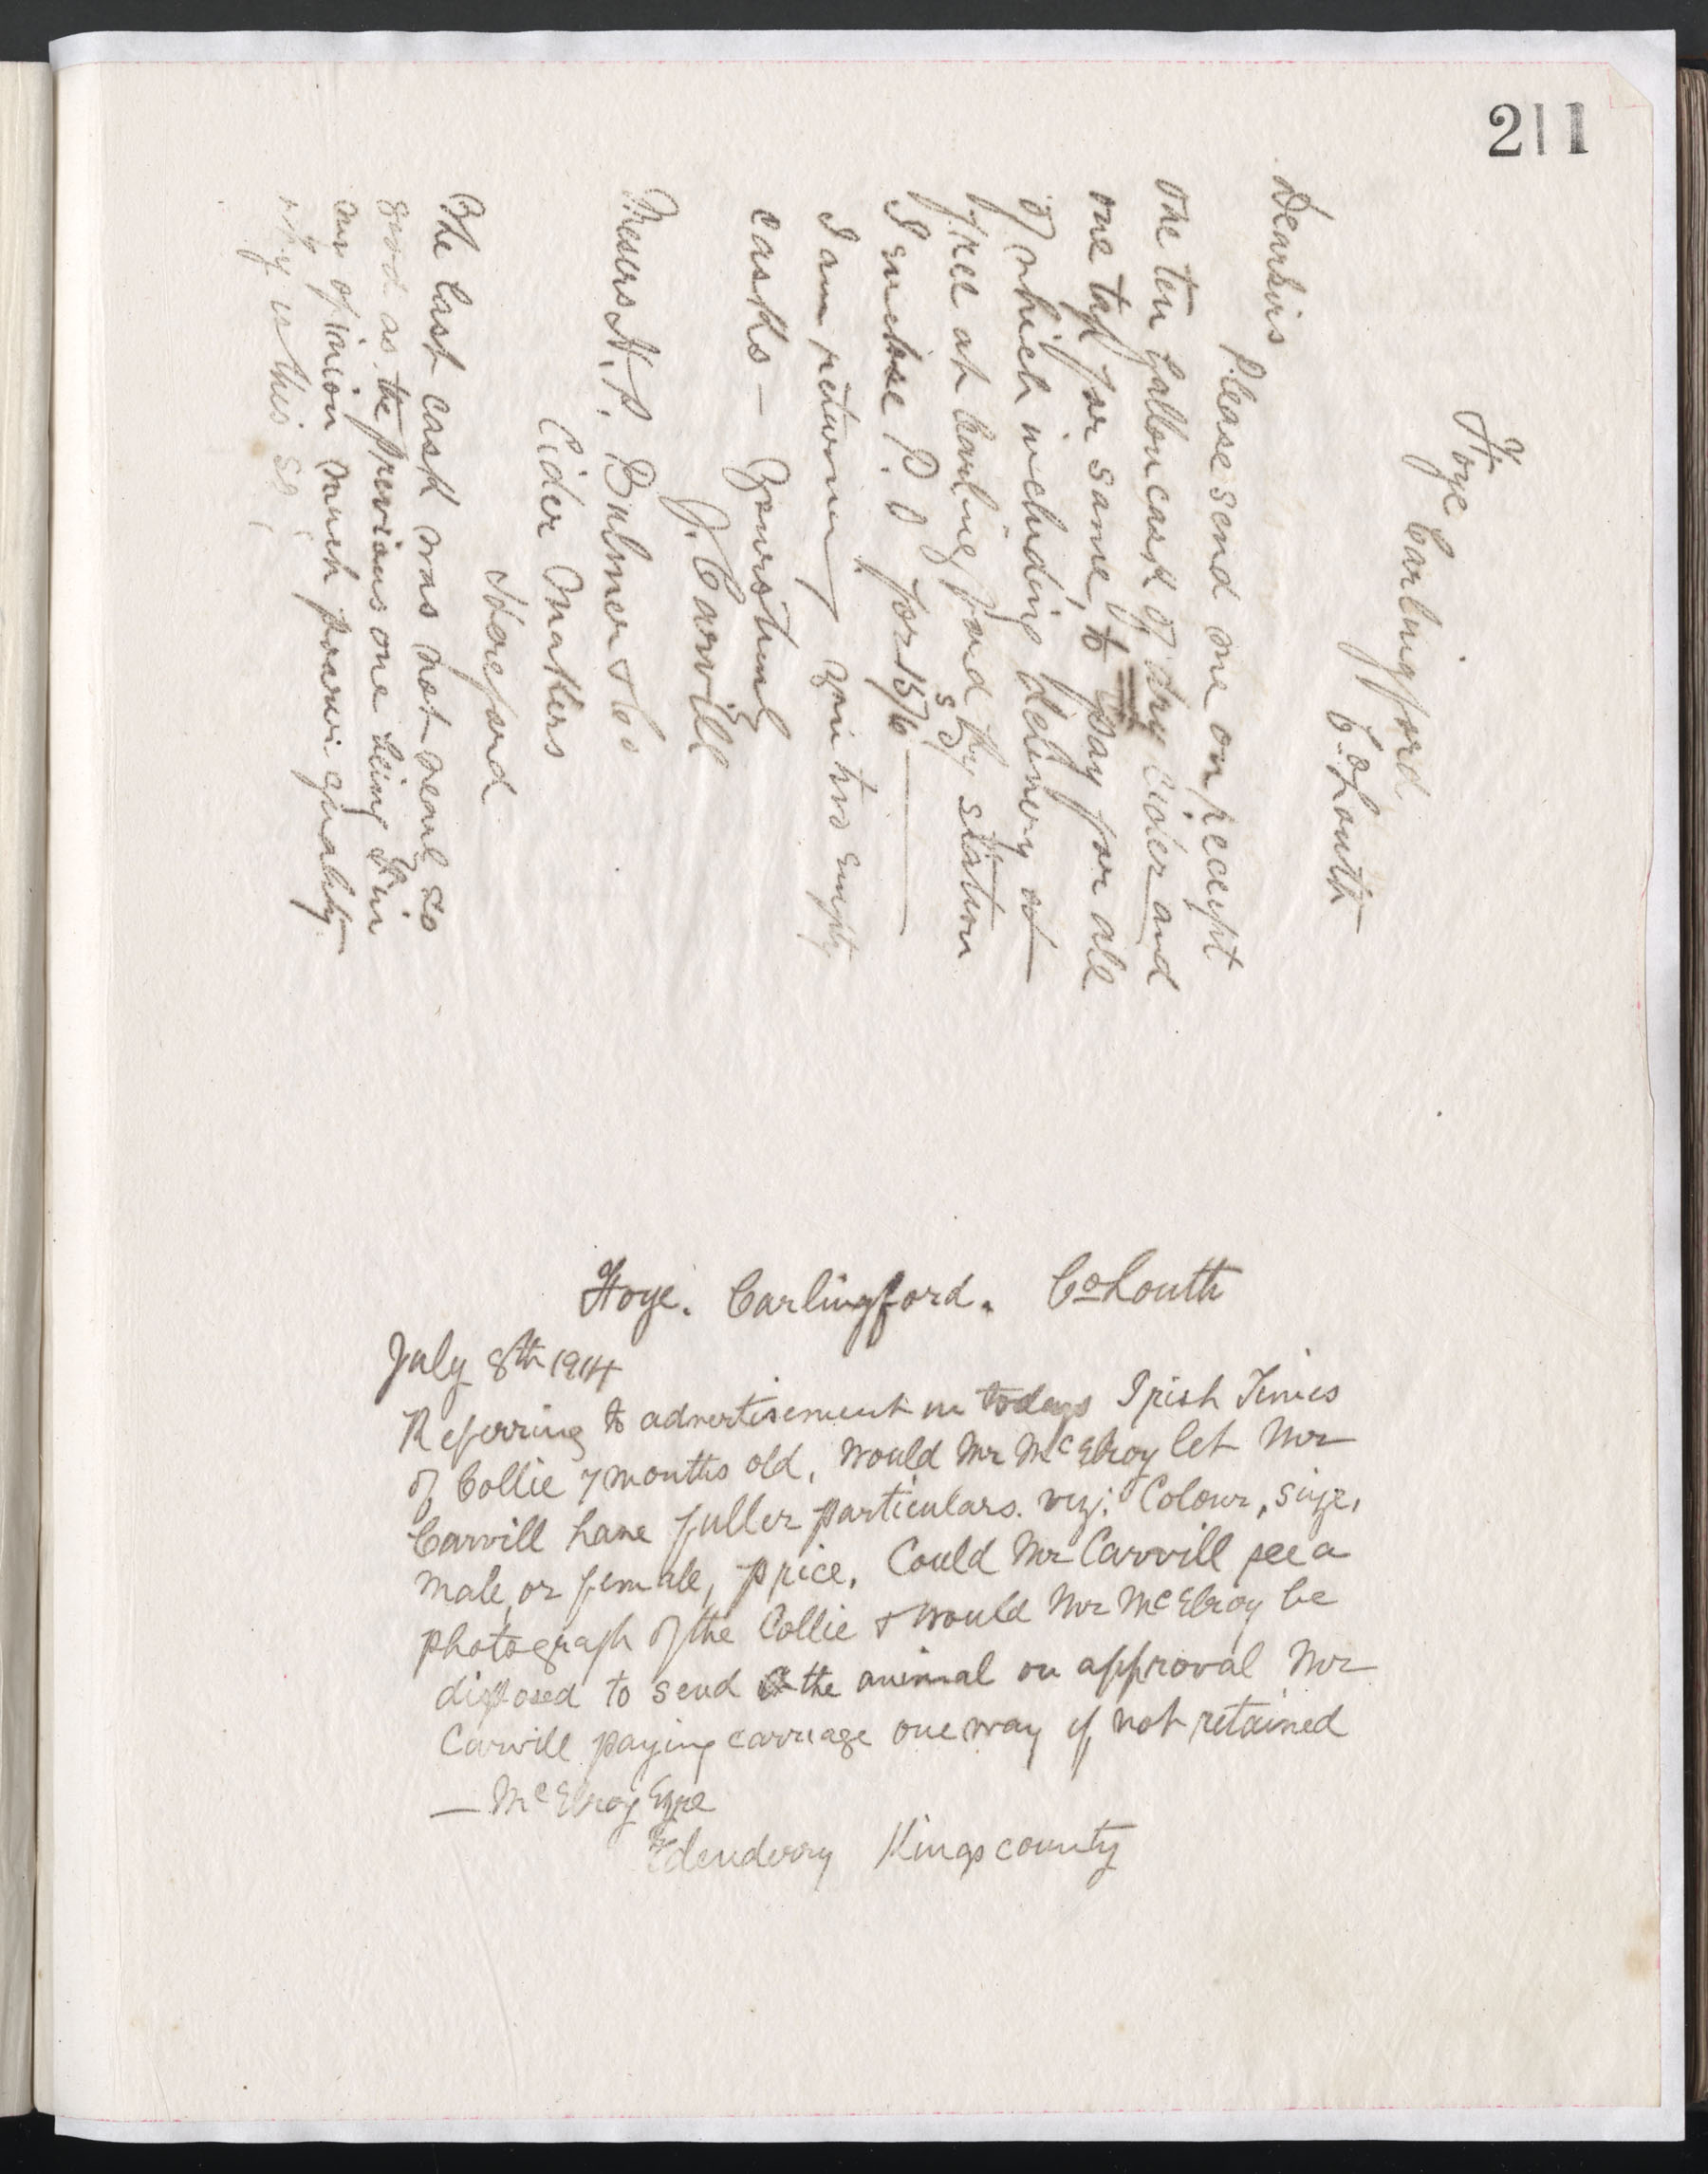 211
Hoye
Carlingford
Co. Louth
Dear Sirs
Please send me on receipt
one ten gallon cask of dry cider and
one tap for same, to pay for all
of which including delivery at
free at Carlingford Rly station
I enclose P.O for 15s/6d
I am returning you two empty
casks — Yours truly
J. Carvill
Messrs H. P. Bulmer & Co
Cider Makers
Hereford
The last cask was not nearly so
good as the previous one being in
my opinion much poorer quality.
why is this so?
Hoye. Carlingford. Co Louth
July 8th 1914
Referring to advertisement in todays Irish Times
of Collie 7 months old, would Mr McElroy let Mr
Carvill have fuller particulars. viz: Colour, size,
male, or female, price. Could Mr Carvill see a
photograph of the Collie & would Mr McElroy be
disposed to send the animal on approval Mr
Carvill paying carriage one way if not retained
— McElroy Esqre
Edenderry Kings county